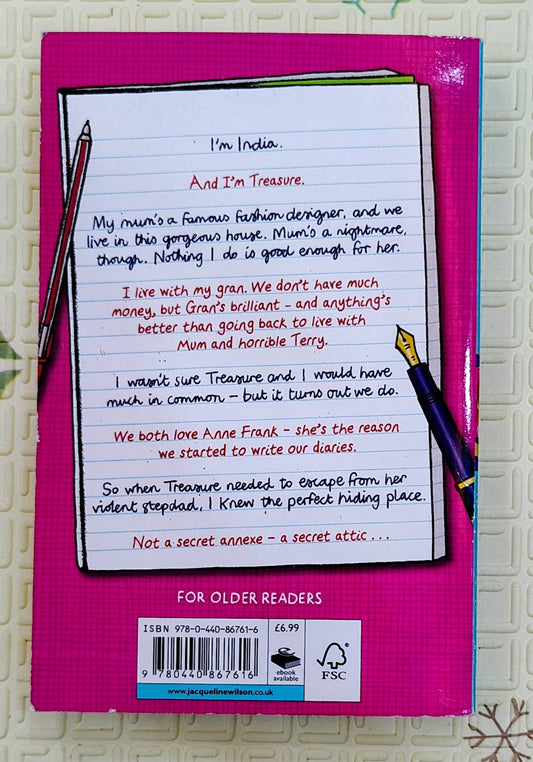 I'm India.
And I'm Treasure.
My mum's a famous fashion designer, and we
live in this gorgeous house. Mum's a nightmare,
though. Nothing I do is good enough for her.
I live with my gran. We don't have much
money, but Gran's brilliant – and anything's
better than going back to live with
Mum and horrible Terry.
I wasn't sure Treasure and I would have
much in common – but it turns out we do.
We both love Anne Frank – she's the reason
we started to write our diaries.
So when Treasure needed to escape from her
violent stepdad, I knew the perfect hiding place.
Not a secret annexe – a secret attic . . .
FOR OLDER READERS
ISBN 978-0-440-86761-6
£6.99
9 780440 867616
ebook
available
FSC
www.jacquelinewilson.co.uk